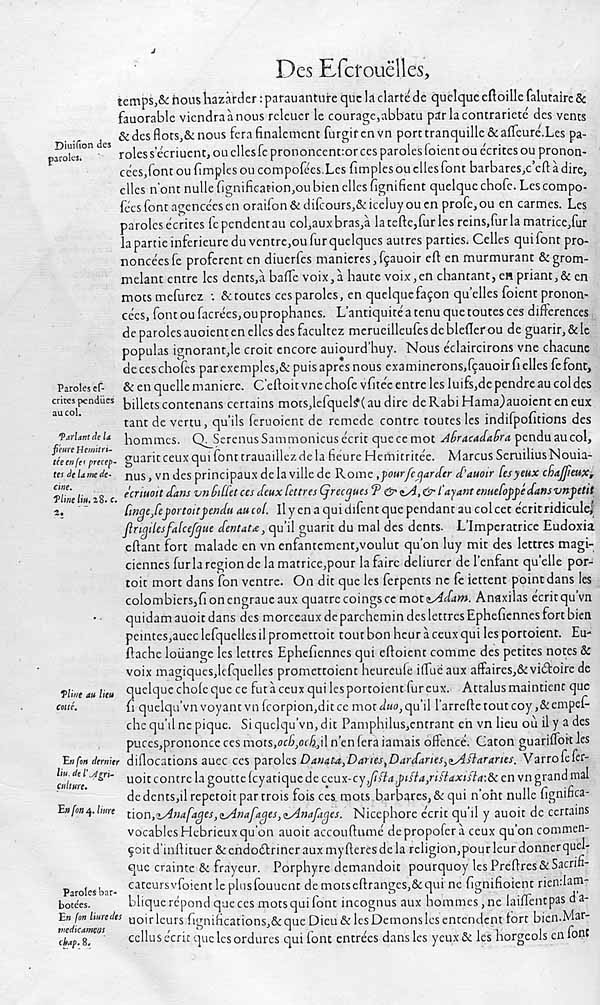 Des Eſcrouëlles,
temps,& nous hazarder : parauanture que la clarté de quelque eſtoille ſalutaire &
fauorable viendra à nous releuer le courage,abbatu par la contrarieté des vents
& des flots,& nous fera finalement ſurgir en vn port tranquille & aſſeuré.Les pa-
Diuiſion des
paroles.
roles s'écriuent, ou elles ſe prononcent:or ces paroles ſoient ou écrites ou pronon-
cées,ſont ou ſimples ou compoſées.Les ſimples ou elles ſont barbares,c'eſt à dire,
elles n'ont nulle ſignification,ou bien elles ſignifient quelque choſe. Les compo-
ſées ſont agencées en oraiſon & diſcours,& iceluy ou en proſe, ou en carmes. Les
paroles écrites ſe pendent au col,aux bras,à la teſte,ſur les reins,ſur la matrice,ſur
la partie inferieure du ventre,ou ſur quelques autres parties. Celles qui ſont pro-
noncées ſe proferent en diuerſes manieres, ſçauoir eſt en murmurant & grom-
melant entre les dents,à baſſe voix, à haute voix, en chantant, en priant, & en
mots meſurez : & toutes ces paroles, en quelque façon qu'elles ſoient pronon-
cées, ſont ou ſacrées, ou prophanes. L'antiquité a tenu que toutes ces differences
de paroles auoient en elles des facultez merueilleuſes de bleſſer ou de guarir, & le
populas ignorant,le croit encore auiourd'huy. Nous éclaircirons vne chacune
de ces choſes par exemples,& puis aprés nous examinerons,ſçauoir ſi elles ſe font,
Paroles eſ-
crites penduës
au col.
& en quelle maniere. C'eſtoit vne choſe vſitée entre les Iuifs,de pendre au col des
billets contenans certains mots,leſquels (au dire de Rabi Hama) auoient en eux
tant de vertu, qu'ils ſeruoient de remede contre toutes les indiſpoſitions des
Parlant de la
fieure Hemitri-
tée en ſes precep-
tes de la mede-
cine.
hommes. Q. Serenus Sammonicus écrit que ce mot Abracadabra pendu au col,
guarit ceux qui ſont trauaillez de la fieure Hemitritée. Marcus Seruilius Nouia-
nus, vn des principaux de la ville de Rome, pour ſe garder d'auoir les yeux chaſſieux,
Pline liu. 28. c.
2.
écriuoit dans vn billet ces deux lettres Grecques P & A, & l'ayant enueloppé dans vn petit
linge, ſe portoit pendu au col. Il y en a qui diſent que pendant au col cet écrit ridicule,
ſtrigiles falceſque dentatæ, qu'il guarit du mal des dents. L'Imperatrice Eudoxia
eſtant fort malade en vn enfantement,voulut qu'on luy mit des lettres magi-
ciennes ſur la region de la matrice,pour la faire deliurer de l'enfant qu'elle por-
toit mort dans ſon ventre. On dit que les ſerpents ne ſe iettent point dans les
colombiers, ſi on engraue aux quatre coings ce mot Adam. Anaxilas écrit qu'vn
quidam auoit dans des morceaux de parchemin des lettres Epheſiennes fort bien
peintes,auec leſquelles il promettoit tout bon heur à ceux qui les portoient. Eu-
ſtache loüange les lettres Epheſiennes qui eſtoient comme des petites notes &
voix magiques,leſquelles promettoient heureuſe iſſuë aux affaires,& victoire de
Pline au lieu
cotté.
quelque choſe que ce fut à ceux qui les portoient ſur eux. Attalus maintient que
ſi quelqu'vn voyant vn ſcorpion,dit ce mot duo, qu'il l'arreſte tout coy ,& empeſ-
che qu'il ne pique. Si quelqu'vn, dit Pamphilus,entrant en vn lieu où il y a des
puces,prononce ces mots,och,och,il n'en ſera iamais offencé. Caton guariſſoit les
En ſon dernier
liu. de l'Agri-
culture.
diſlocations auec ces paroles Danata, Daries, Dardaries, Aſtararies. Varro ſe ſer-
uoit contre la goutte ſcyatique de ceux-cy,ſiſta,piſta,riſtaxiſta:& en vn grand mal
de dents,il repetoit par trois fois ces mots barbares, & qui n'ont nulle ſignifica-
En ſon 4. liure
tion,Anaſages,Anaſages,Anaſages. Nicephore écrit qu'il y auoit de certains
vocables Hebrieux qu'on auoit accouſtumé de propoſer à ceux qu'on commen-
çoit d'inſtituer & endoctriner aux myſteres de la religion,pour leur donner quel-
que crainte & frayeur. Porphyre demandoit pourquoy les Preſtres & Sacrifi-
Paroles bar-
botées.
cateurs vſoient le plus ſouuent de mots eſtranges,& qui ne ſignifioient rien:Iam-
blique répond que ces mots qui ſont incognus aux hommes , ne laiſſent pas d'a-
En ſon liure des
medicamens
chap. 8.
uoir leurs ſignifications,& que Dieu & les Demons les entendent fort bien.Mar-
cellus écrit que les ordures qui ſont entrées dans les yeux & les horgeols en ſont